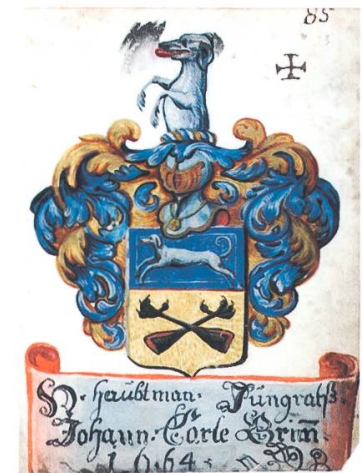 85
H. haubtman. Jungrathß
Johann Cörle
1664